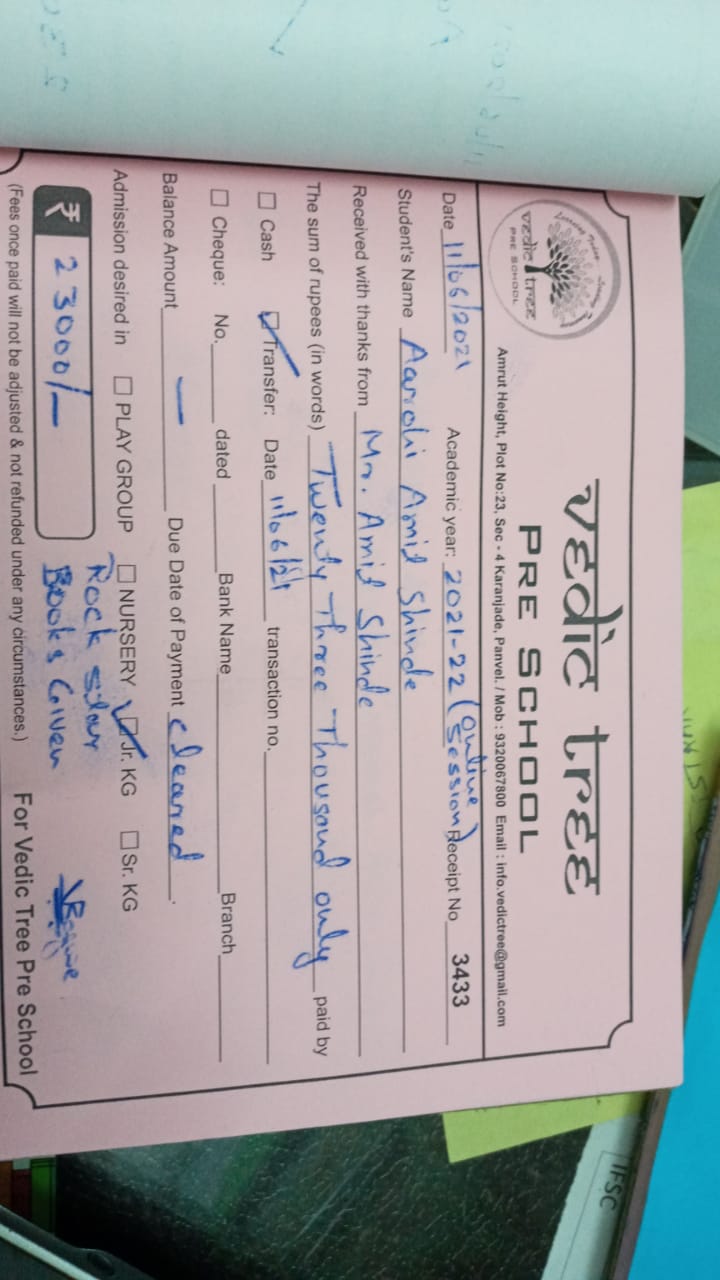 vedic tree
PRE SCHOOL
vedic tree
PRE SCHOOL
Amrut Height, Plot No:23, Sec - 4 Karanjade, Panvel. / Mob : 9320067800 Email : info.vedictree@gmail.com
Date 11/06/2021 Academic year: 2021-22 (Online Session) Receipt No 3433
Student's Name Aarohi Amit Shinde
Received with thanks from Mr. Amit Shinde
The sum of rupees (in words) Twenty Three Thousand only paid by
☐ Cash ☑ Transfer: Date 11/06/21 transaction no.
☐ Cheque: No. dated Bank Name Branch
Balance Amount — Due Date of Payment cleared.
Admission desired in ☐ PLAY GROUP ☐ NURSERY ☑ Jr. KG ☐ Sr. KG
₹ 23000/- Rock star
Books Given
(Fees once paid will not be adjusted & not refunded under any circumstances.) For Vedic Tree Pre School
IFSC